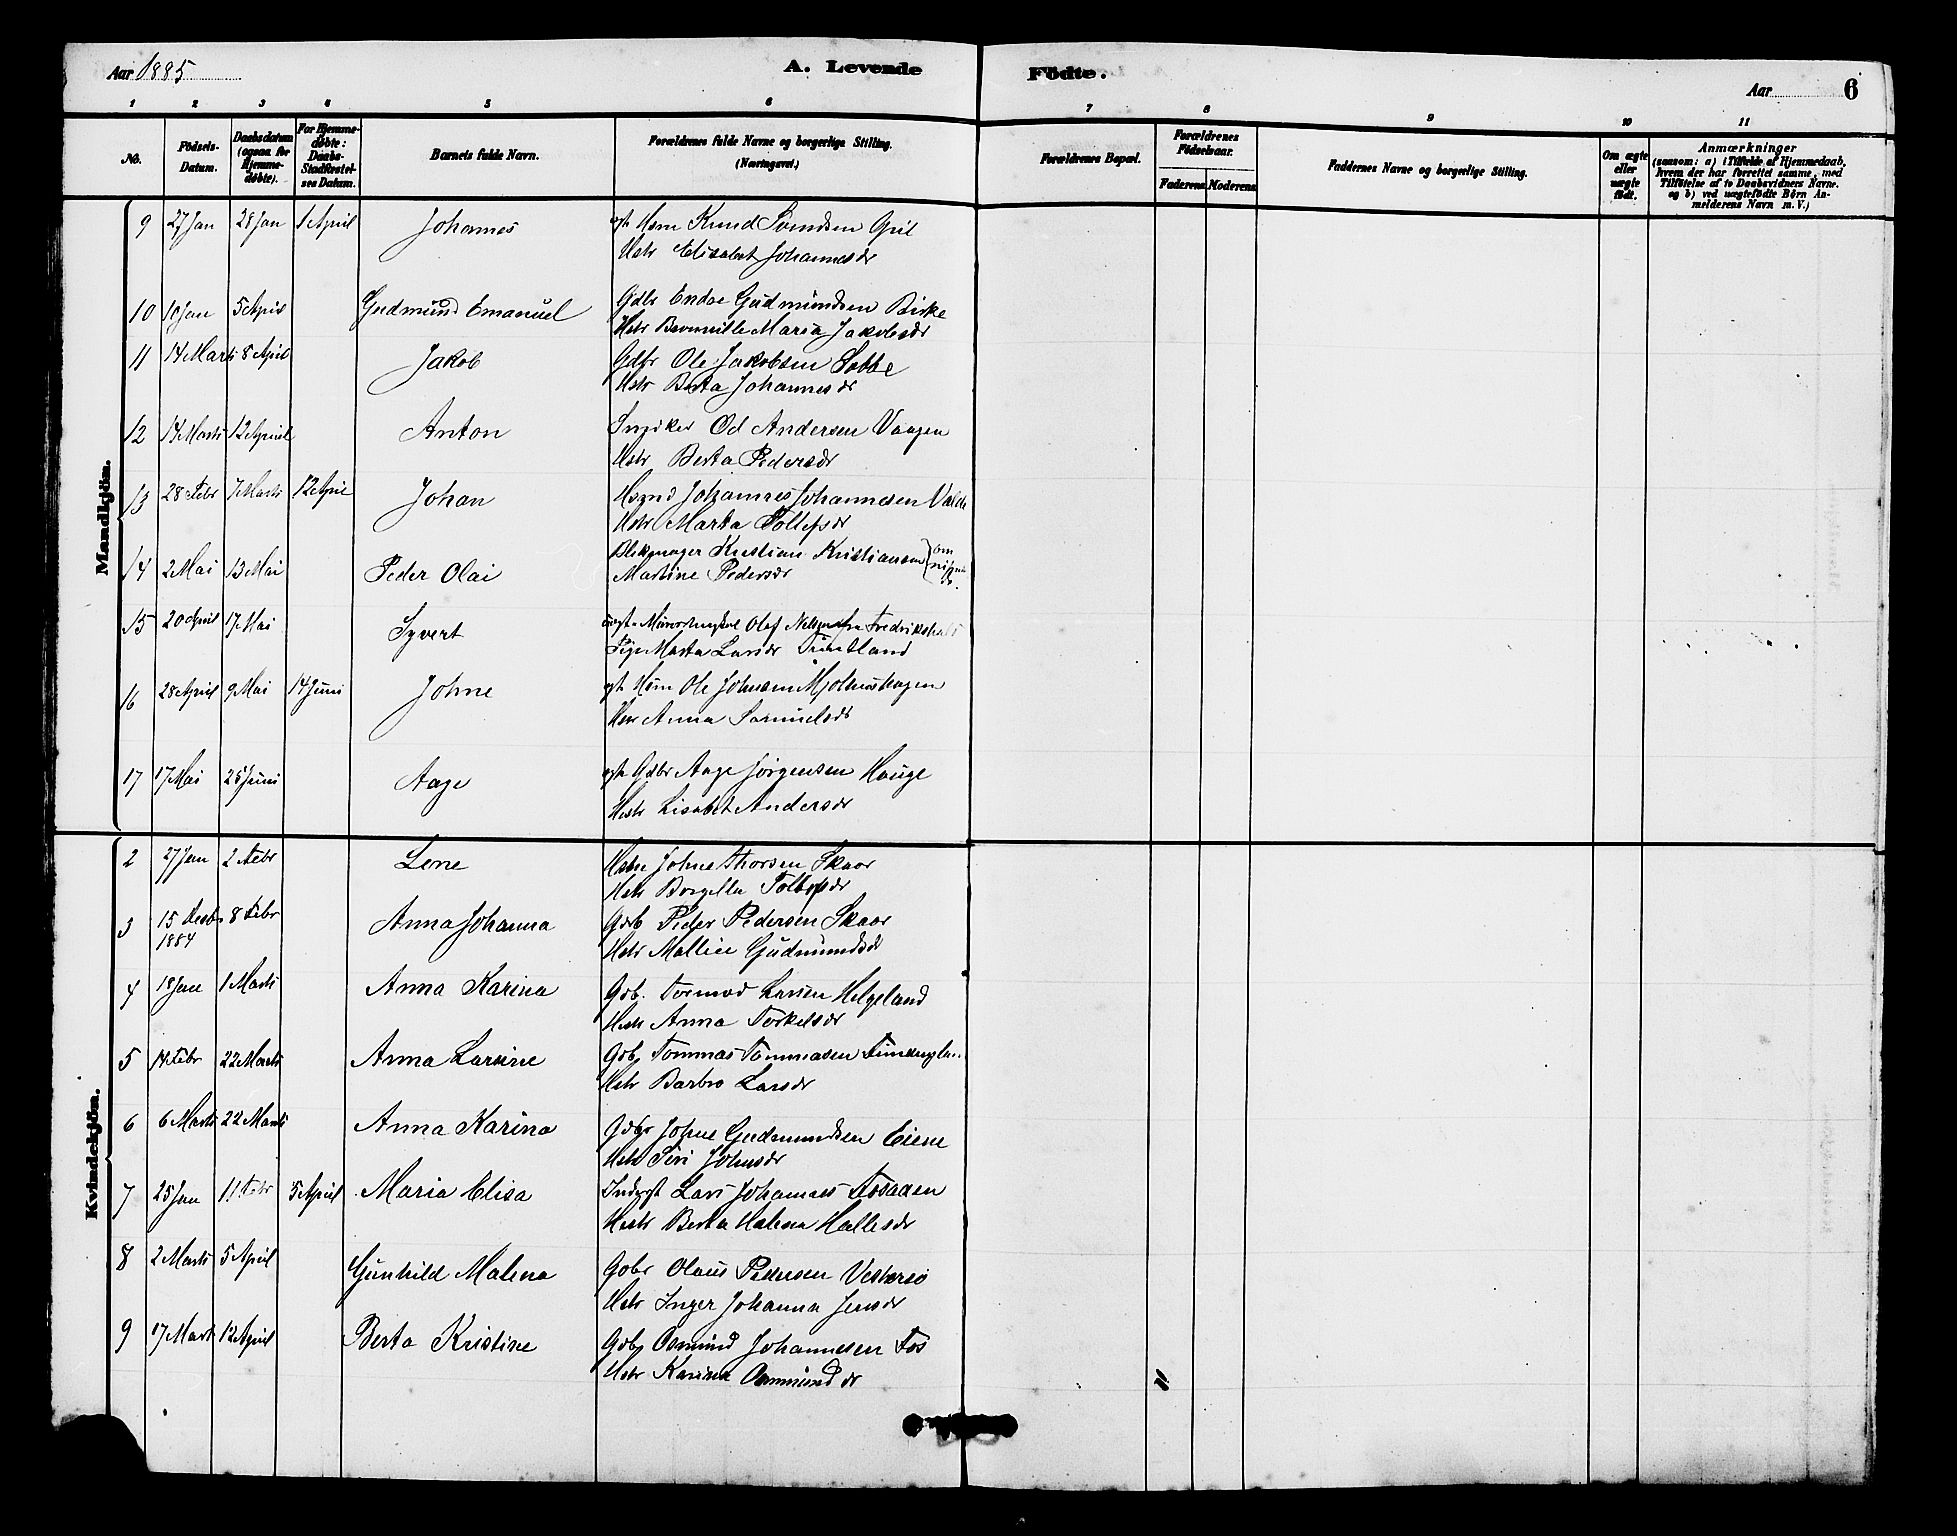 Aar 1885
A. Levende Födte.
Aar 6
1 2 3 4 5 6 7 8 9 10 11
No.
Födsels-Datum.
Daabsdatum (ogsaa for Hjemme-döbte).
For Hjemme-döbte: Daabs-Stadfæstel-ses Datum.
Barnets fulde Navn.
Forældrenes fulde Navne og borgerlige Stilling. (Næringsvei.)
Forældrenes Bopæl.
Forældrenes Födselsaar.
Faderens Moderens
Faddernes Navne og borgerlige Stilling.
Om ægte eller uægte födt.
Anmærkninger (saasom: a) i Tilfælde af Hjemmedaab, hvem der har forrettet samme, med Tilföielse af to Daabsvidners Navne. og b) ved uægtefödte Börn An-melderens Navn m. V.)
Mandkjön.
9 27 Jan 28 Jan 1 April Johannes Knud Svendsen
Hstr Elisabet Johannesdr
10 10 Jan 5 April Gudmund Emanuel Gdbr Endre Gudmundsen Birke
Hstr Maria Jakobsdr
11 14 Marts 8 April Jakob Gdbr Ole Jakobsen
Hstr Berta Johannesdr
12 14 Marts 12 April Anton Od Andersen Vaagen
Hstr Berta Pedersdr
13 28 Febr 7 Marts 12 April Johan Hsmd Johannes Johannesen
Hstr Marta Tollefsdr
14 2 Mai 13 Mai Peder Olai Kristian Kristiansen
Martine Pedersdr
15 20 April 17 Mai Syvert Olaf Fredrikshald
Pige Marta Larsdr
16 28 April 9 Mai 14 Juni Johne Hsm Ole Johnsen
Hstr Anna Samuelsdr
17 17 Mai 25 Juni Aage Gdbr Aage Jörgensen Hauge
Hstr Lisabet Andersdr
Kvindekjön.
2 27 Jan 2 Febr Lene Johne Thorsen Skaar
Hstr Borgilla Tollefsdr
3 15 Decbr 1884 8 Febr Anna Johanna Gdb Peder Pedersen Skaar
Hstr Malline Gudmundsdr
4 18 Jan 1 Marts Anna Karina Gdb. Tormod Larsen Helgeland
Hstr Anna Torkelsdr
5 14 Febr 22 Marts Anna Larsine Gdb Tommas Tommasen
Hstr Barbro Larsdr
6 6 Marts 22 Marts Anna Karina Gdbr Johne Gudmundsen Eiene
Hstr Siri Johnsdr
7 25 Jan 11 Febr 5 April Maria Elisa Inderst Lars Johannes Fosaaen
Hstr Berta Malena Hallesdr
8 2 Marts 5 April Gunhild Malena Gdbr Olaus Pedersen Vestersö
Hstr Inger Johanna Jensdr
9 17 Marts 12 April Berta Kristine Gdb Osmund Johannesen Fos
Hstr Karina Osmundsdr